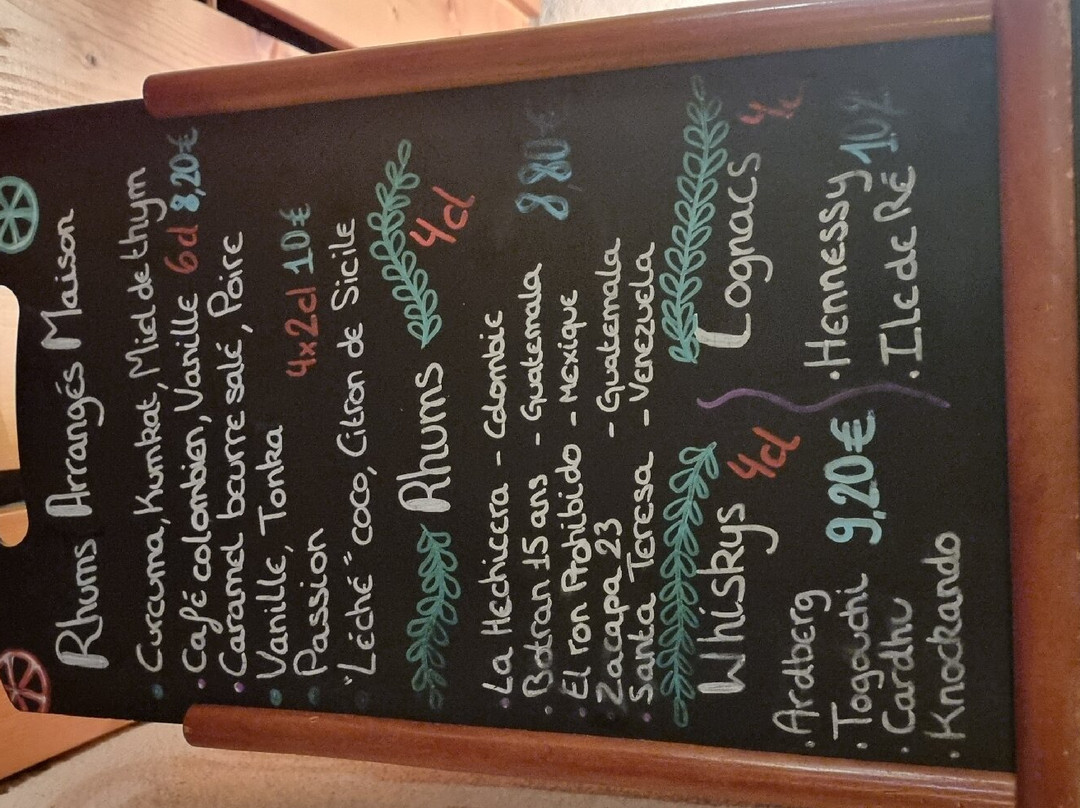 Rhums Arrangés Maison
Curcuma, Kumkat, Miel de thym
Café colombien, Vanille 6cl 8,20€
Caramel beurre salé, Poire
Vanille, Tonka
4x2cl 10€
Passion
"Léché" coco, Citron de Sicile
Rhums 4cl
La Hechicera - Colombie
Botran 15 ans - Guatemala 8,80€
El ron Prohibido - Mexique
Zacapa 23 - Guatemala
Santa Teresa - Venezuela
Whiskys 4cl
Ardberg
Togouchi 9,20€
Cardhu
Knockando
Cognacs
Hennessy
Ile de Ré